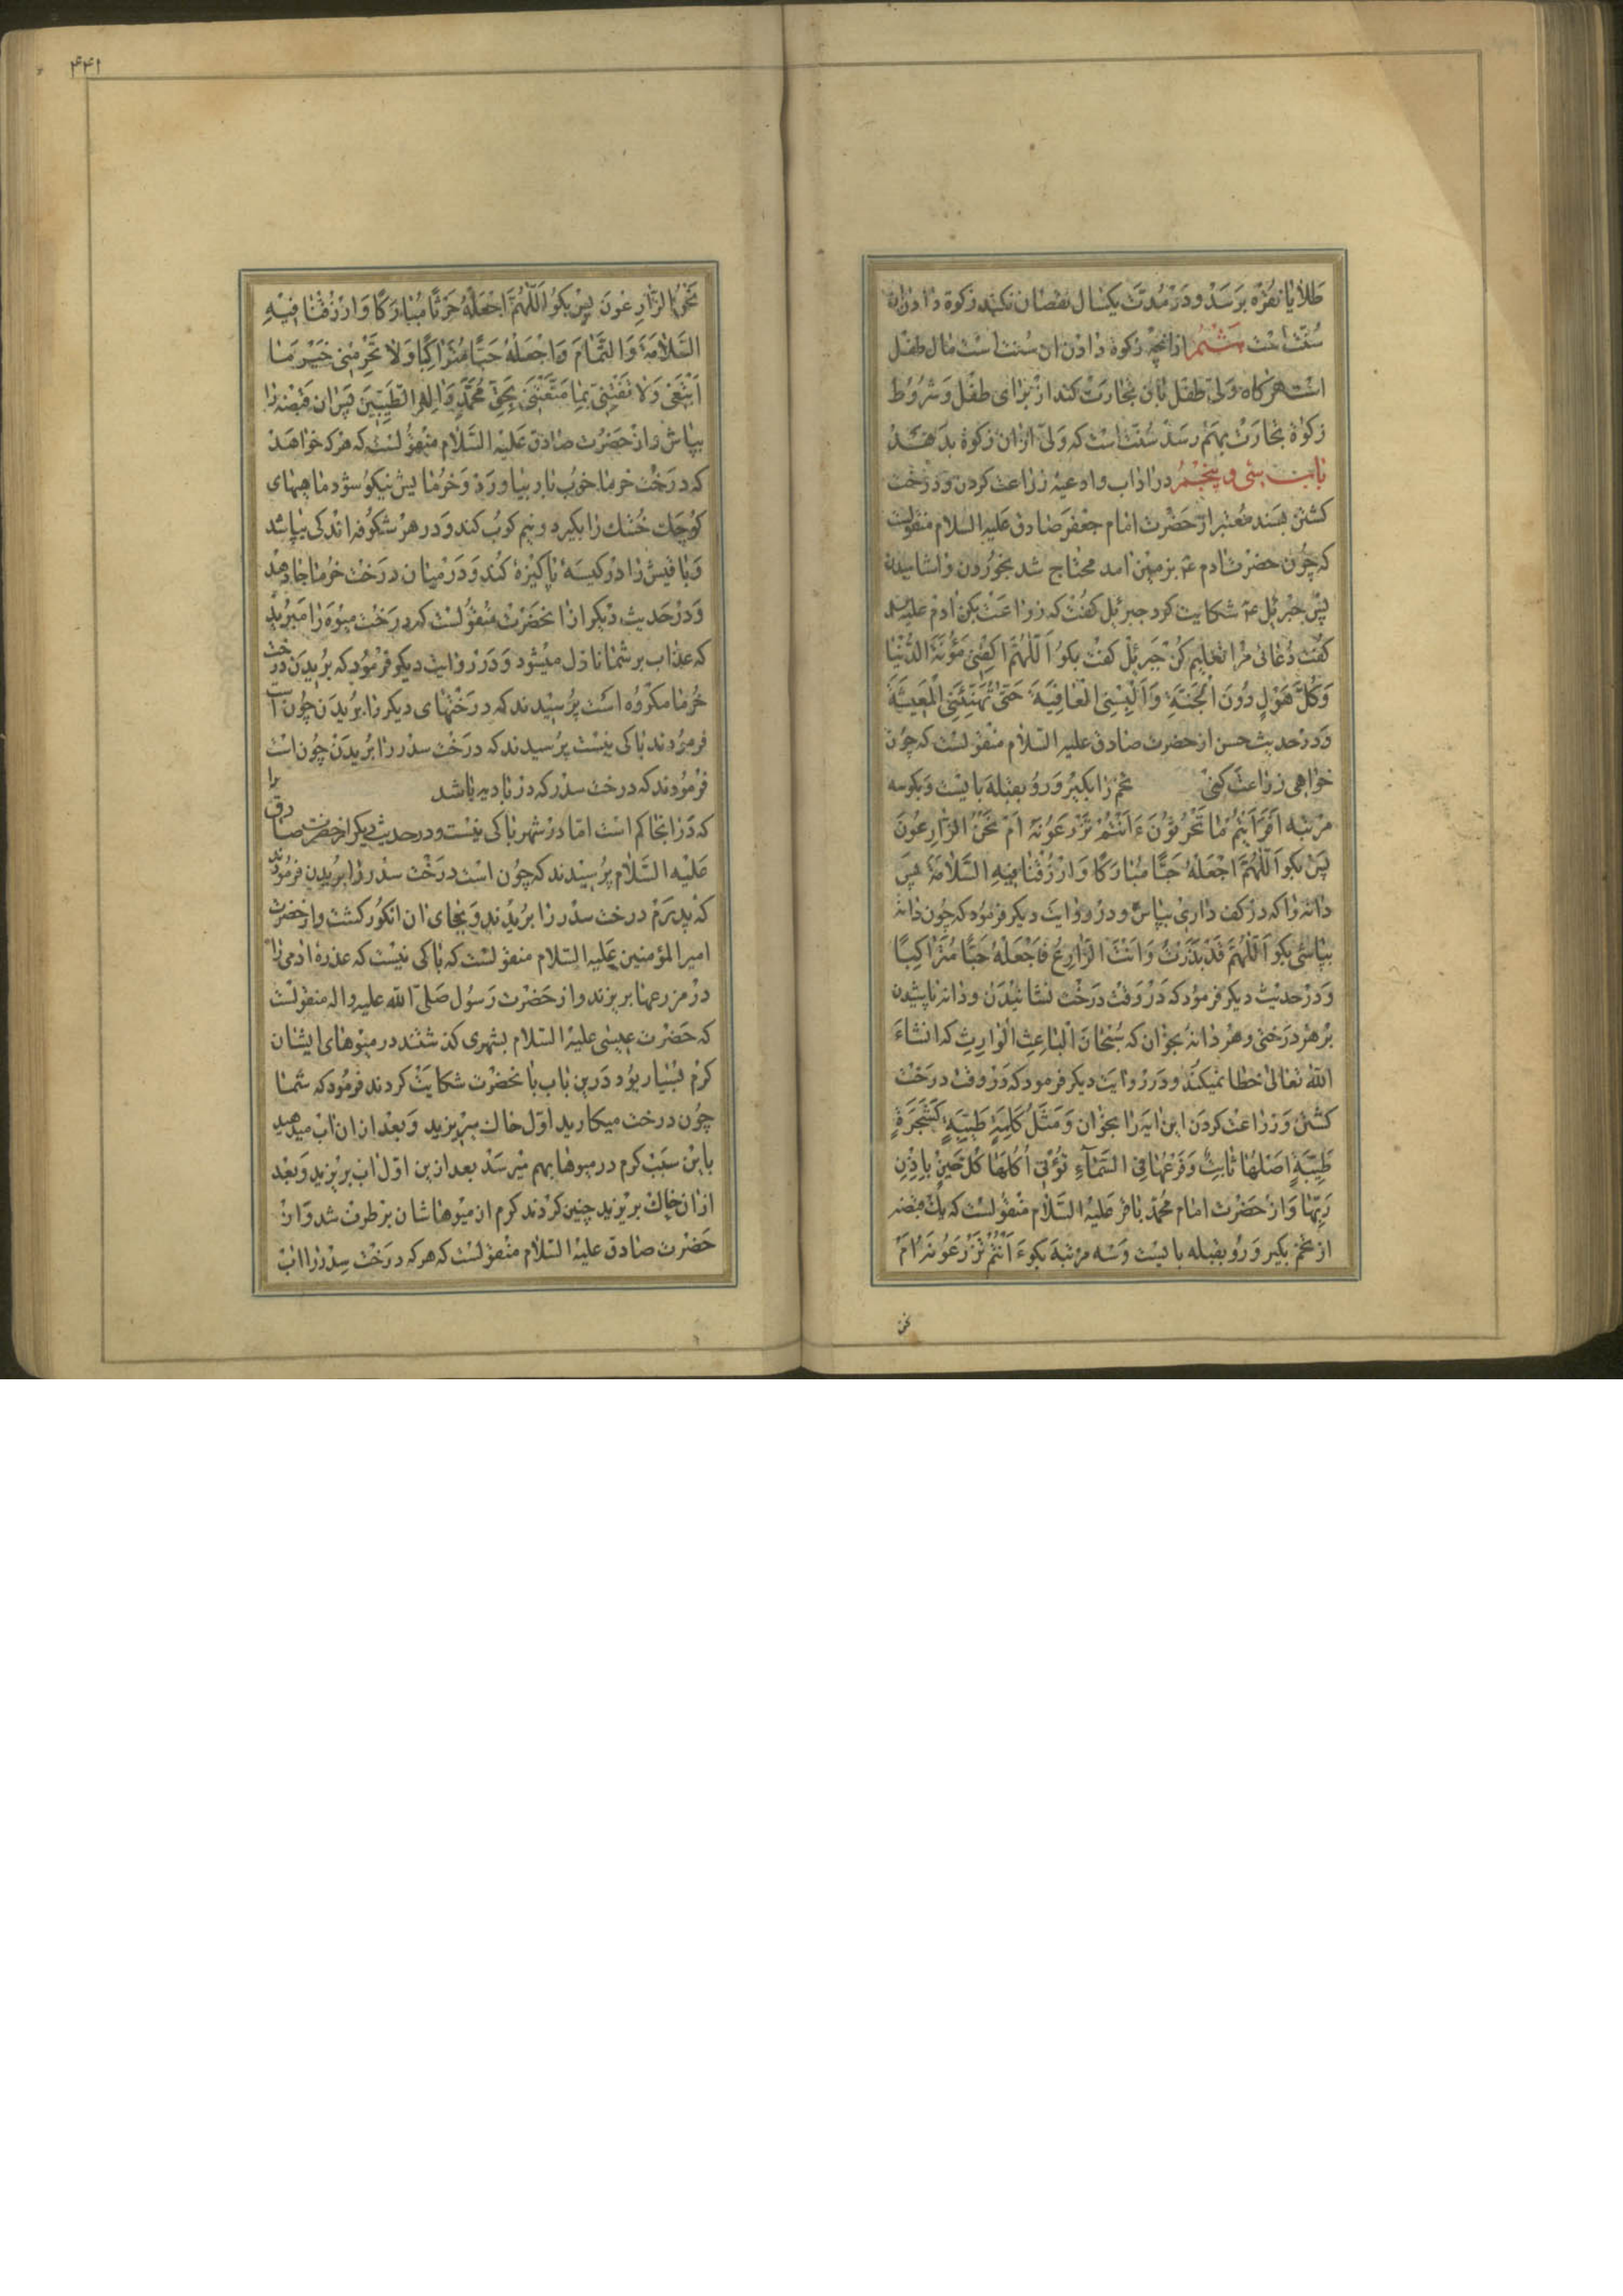 طلا یا نقره برسد و در مدت یکسال نقصان نکند زکوة دادن ان
سنت است هشتم از انچه زکوة دادن ان سنت است مال طفل
است هرکاه ولی طفل بان تجارت کند از برای طفل و شروط
زکوة تجارت بهم رسد سنت است که ولی از ان زکوة بدهد
باب سی و پنجم در اداب و ادعیه زراعت کردن و درخت
کشتن بسند معتبر از حضرت امام جعفر صادق علیه السلام منقولست
که چون حضرت ادم ع بزمین امد محتاج شد بخوردن و اشامیدن
پس جبرئل ع شکایت کرد جبرئل کفت که زراعت بکن ادم علیه السلام
کفت دعائی مرا تعلیم کن جبرئل کفت بکو اَللّهُمَّ اکفِنی مَؤُنَةَ الدُّنْیا
وَکُلَّ هَوْلٍ دُونَ الْجَنَّةِ وَاَلْبِسْنِی الْعافِیَةَ حَتّی تُهَنِّئَنِی الْمَعیشَةَ
و در حدیث حسن از حضرت صادق علیه السلام منقولست که چون
خواهی زراعت کنی تخم را بکیر و رو بقبله بایست و بکو سه
مرتبه اَفَرَاَیْتُمْ ما تَحْرُثُونَ ءَاَنْتُمْ تَزْرَعُونَهُ اَمْ نَحْنُ الزّارِعُونَ
پس بکو اَللّهُمَّ اجْعَلْهُ حَبًّا مُبارَکًا وَارْزُقْنا فیهِ السَّلامَةَ پس
دانه را که در کف داری بپاش و در روایت دیکر فرمود که چون دانه
بپاشی بکو اَللّهُمَّ قَدْ بَذَرْتُ وَاَنْتَ الزّارِعُ فَاجْعَلْهُ حَبًّا مُتَراکِبًا
و در حدیث دیکر فرمود که در وقت درخت نشانیدن و دانه پاشیدن
بر هر درختی و هر دانه بخوان که سُبْحانَ الْباعِثِ الْوارِثِ که انشاء
الله تعالی خطا نمیکند و در روایت دیکر فرمود که در وقت درخت
کشتن و زراعت کردن این ایه را بخوان وَمَثَلُ کَلِمَةٍ طَیِّبَةٍ کَشَجَرَةٍ
طَیِّبَةٍ اَصْلُها ثابِتٌ وَفَرْعُها فِی السَّمآءِ تُؤْتی اُکُلَها کُلَّ حینٍ بِاِذْنِ
رَبِّها و از حضرت امام محمد باقر علیه السلام منقولست که یک قبضه
از تخم بکیر و رو بقبله بایست و سه مرتبه بکو ءَاَنْتُمْ تَزْرَعُونَهُ اَمْ
نحن
۴۴۱
نَحْنُ الزّارِعُونَ پس بکو اَللّهُمَّ اجْعَلْهُ حَرْثًا مُبارَکًا وَارْزُقْنا فیهِ
السَّلامَةَ وَالتَّمامَ وَاجْعَلْهُ حَبًّا مُتَراکِبًا وَلا تَحْرِمْنی خَیْرَ ما
اَبْتَغی وَلا تَفْتِنّی بِما مَتَّعْتَنی بِحَقِّ مُحَمَّدٍ وَالِهِ الطَّیِّبینَ پس ان قبضه را
بپاش و از حضرت صادق علیه السلام منقولست که هرکه خواهد
که درخت خرما خوب بار بیاورد و خرمایش نیکو شود ماهیهای
کوچک خشک را بکیرد و نیم کوب کند و در هر شکوفه اندکی بپاشد
و باقیش را در کیسهٔ پاکیزه کند و در میان درخت خرما جا دهد
و در حدیث دیکر از انحضرت منقولست که درخت میوه را مبرید
که عذاب بر شما نازل میشود و در روایت دیکر فرمود که بریدن درخت
خرما مکروه است پرسیدند که درختهای دیکر را بریدن چون است
فرمودند باکی نیست پرسیدند که درخت سدر را بریدن چون است
فرمودند که درخت سدر که در بادیه باشد
که در انجا کم است اما در شهر باکی نیست و در حدیث دیکر از حضرت صادق
علیه السلام پرسیدند که چون است درخت سدر را بریدن فرمودند
که پدرم درخت سدر را بریدند و بجای ان انکور کشت و از حضرت
امیرالمؤمنین علیه السلام منقولست که باکی نیست که عذرهٔ ادمی را
در مزرعها بریزند و از حضرت رسول صلی الله علیه واله منقولست
که حضرت عیسی علیه السلام بشهری کذشتند در میوهای ایشان
کرم بسیار بود در این باب بانحضرت شکایت کردند فرمود که شما
چون درخت میکارید اول خاک میریزید و بعد از ان اب میدهید
باین سبب کرم در میوها بهم میرسد بعد از این اول اب بریزید و بعد
از ان خاک بریزید چنین کردند کرم از میوهاشان برطرف شد و از
حضرت صادق علیه السلام منقولست که هرکه درخت سدر را اب